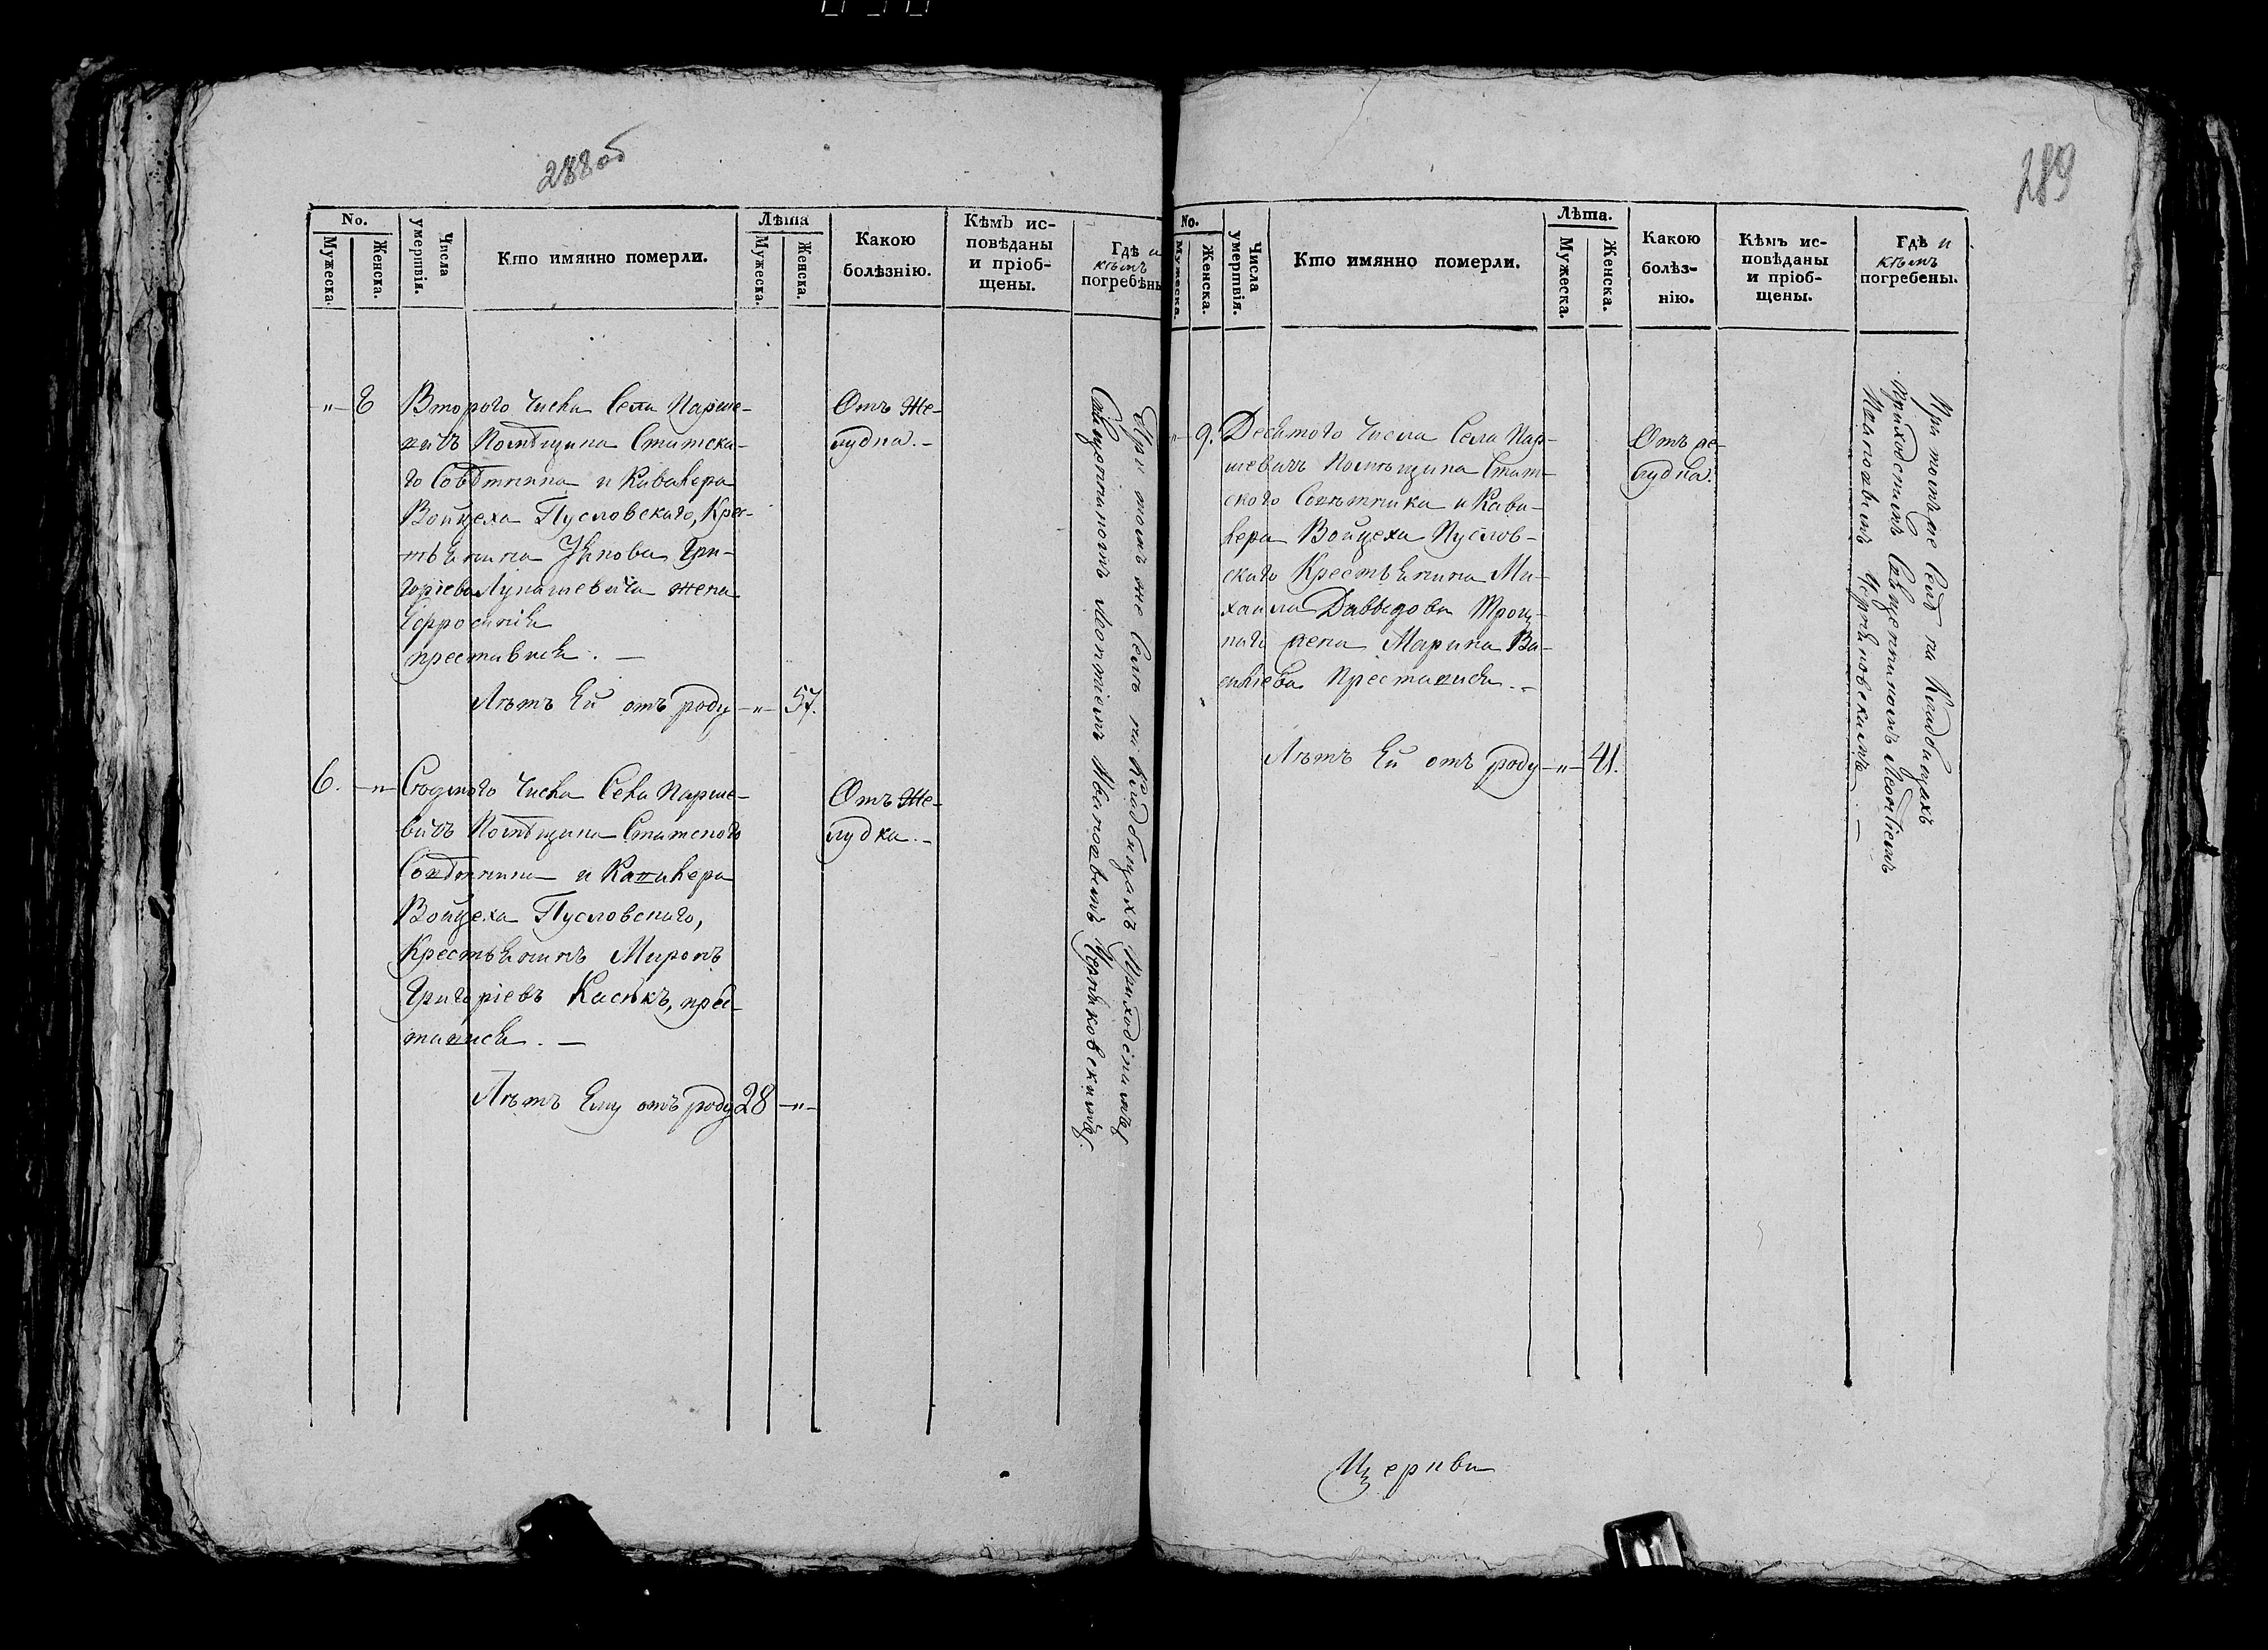 288об
No.
Мужеска.
Женска.
Числа
умертвія.
Кто имянно померли.
Лѣта
Мужеска.
Женска.
Какою
болѣзнію.
Кѣмъ ис-
повѣданы
и пріоб-
щены.
Гдѣ и
кѣмъ
погребены
"
8
Второго Числа Села Парше-
вичъ Помѣщика Статска-
го Совѣтника и Кавалера
Войцеха Пусловскаго, Крес-
тьянина Якова Гри-
горіева Лукашевича жена
преставися. —
Лѣтъ Ей отъ роду — " — 57.
Отъ Же-
лудка. —
При томъ же Селѣ на Кладбищахъ Приходскимъ
Священникомъ Леонтіемъ Черняковскимъ.
6. — " —
Седмого Числа Села Парше-
вичъ Помѣщика Статского
Совѣтника и Кавалера
Войцеха Пусловского,
Крестьянинъ Миронъ
Григоріевъ Касякъ, прес-
тависи. —
Лѣтъ Ему отъ роду 28 — " —
Отъ Же-
лудка. —
289
No.
Мужеска.
Женска.
Числа
умертвія.
Кто имянно померли.
Лѣта.
Мужеска.
Женска.
Какою
болѣз-
нію.
Кѣмъ ис-
повѣданы
и пріоб-
щены.
Гдѣ и
кѣмъ
погребены.
"
9.
Десятого Числа Села Пар-
шевичъ Помѣщика Стат-
ского Совѣтника и Кава-
лера Войцеха Руслов-
скаго Крестьянина Ми-
хаила Давыдова
жена Марина Ва-
силіева Преставися. —
Лѣтъ Ей отъ роду — " — 41.
Отъ же-
лудка.
При томъ же Селѣ на Кладбищахъ
Приходскимъ Священникомъ Леонтіемъ
Черняковскимъ. —
Церкви